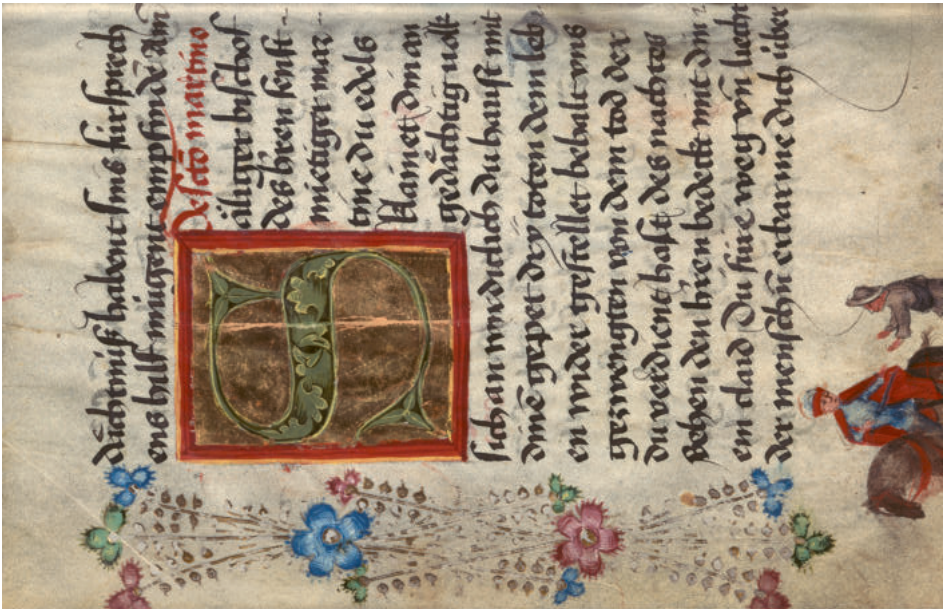 habent sins fürsprech
ens hilff mügent empfinde Am
De scto martino
Säliger bischof
des hren senft-
mietiger mar
tine du edels
klainet d man
gedächtig uolk
sich an wirdiclich du haust mit
dine gepet dry toten dem leb
en wider gestellet behalt vns
von dem tod der
du verdient hast des nachtes
sehen den hren bedeckt mit din
em claid Du fúre weg vn̄ liecht
der menschē erbarme dich über